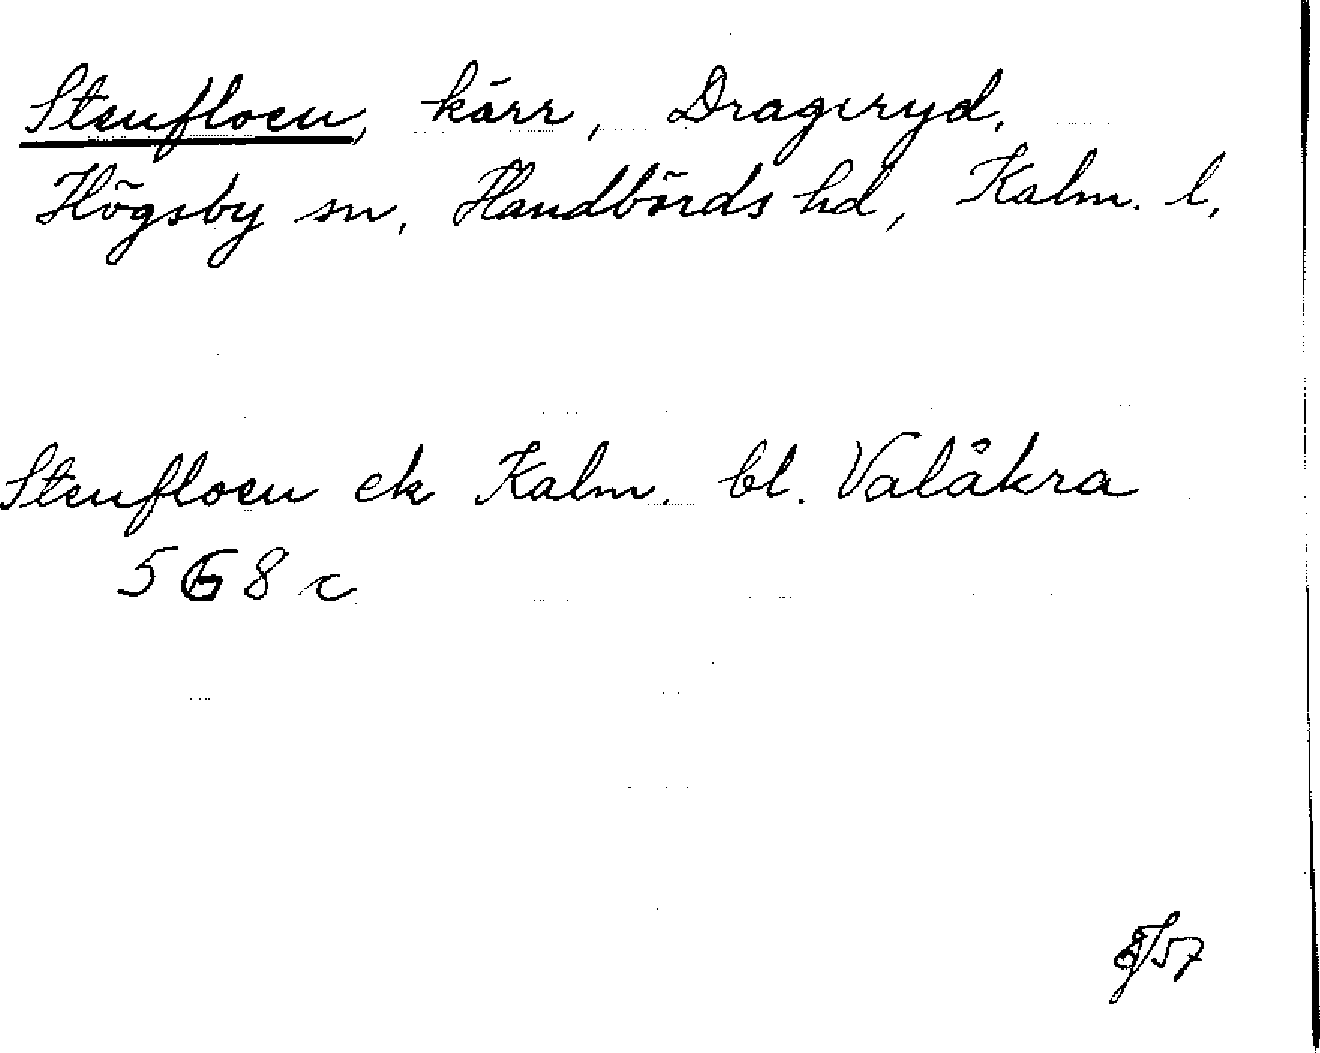 Stenfloen, kärr, Drageryd,
Högsby sn, Handbörds hd, Kalm. l.
Stenfloen ek Kalm. bl. Valåkra
568 c
/57